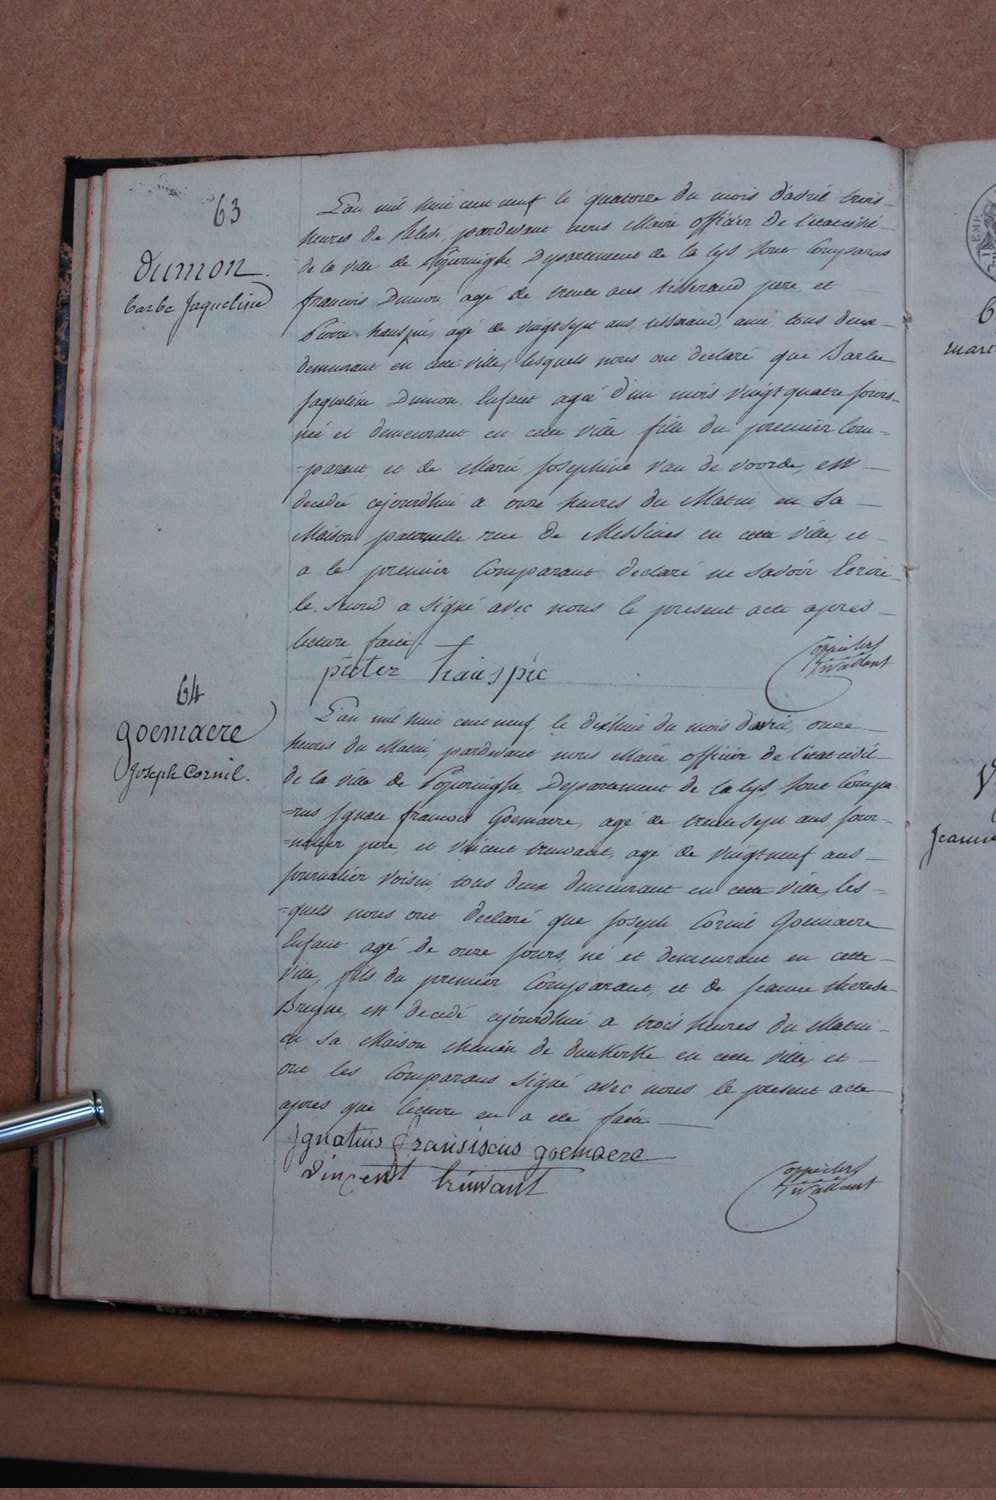 63
Dumon
Barbe Jaqueline
L'an mil huit cent neuf le quatorze du mois d'avril trois
heures de relevé, pardevant nous Maire officier de l'etat civil
de la ville de Poperinghe Departement de la Lys sont Comparus
françois Dumon, agé de trente ans tisserand pere et
Pierre hauspie, agé de vingt sept ans, tisserand, ami, tous deux
demeurant en cette ville, lesquels nous ont declaré que Barbe
Jaqueline Dumon Enfant agée d'un mois vingt quatre jours
né et demeurant en cette ville fille du premier Com-
-parant et de Marie Josephine Van de Voorde, est
decedée cejourd'hui a onze heures du Matin en Sa
Maison paternelle rue de Messines en cette ville, et
a le premier Comparant declaré ne Savoir Ecrire
le Second a signé avec nous le present acte apres
lecture faite.
pieter hauspie
64
goemaere
Joseph Cornil.
L'an mil huit cent neuf, le dixhuit du mois d'avril, onze
heures du Matin, pardevant nous Maire officier de l'etat civil
de la ville de Poperinghe Departement de la Lys, sont Compa-
=rus Ignace francois Goemaere, agé de trente sept ans jour-
=nalier pere, et Vincent truwant, agé de vingt neuf ans
journalier voisin tous deux demeurant en cette ville, les-
=quels nous ont declaré que Joseph Cornil Goemaere
Enfant agé de onze jours, né et demeurant en cette
ville, fils du premier Comparant, et de Jeanne therese
est decedé cejourd'hui a trois heures du Matin
en sa Maison chemin de dunKerKe en cette ville, et
ont les Comparans signé avec nous le present acte
apres que lecture en a eté faite
Ignatius fransiscus goemaere
vincent truwant
6
Jeanne